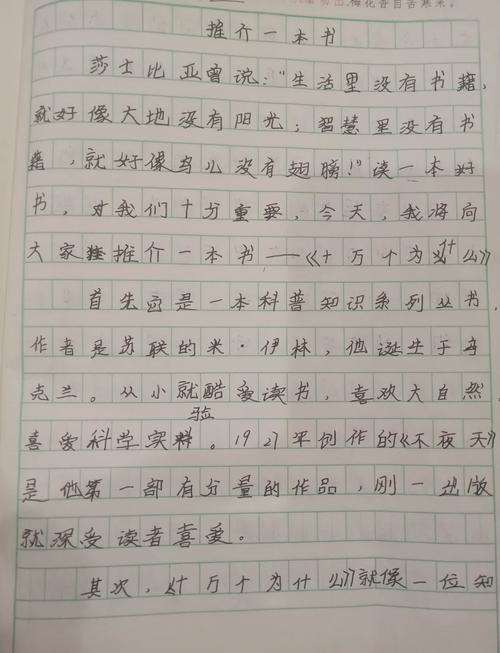 梅花香自苦寒来。
推介一本书
莎士比亚曾说："生活里没有书籍，
就好像大地没有阳光；智慧里没有书
籍，就好像鸟儿没有翅膀！"读一本好
书，对我们十分重要，今天，我将向
大家推介一本书——《十万个为什么》
首先它是一本科普知识系列丛书，
作者是苏联的米·伊林，他诞生于乌
克兰。从小就酷爱读书，喜欢大自然
喜爱科学实验。1927年创作的《不夜天》
是他第一部有分量的作品，刚一出版
就深受读者喜爱。
其次，《十万个为什么》就像一位知